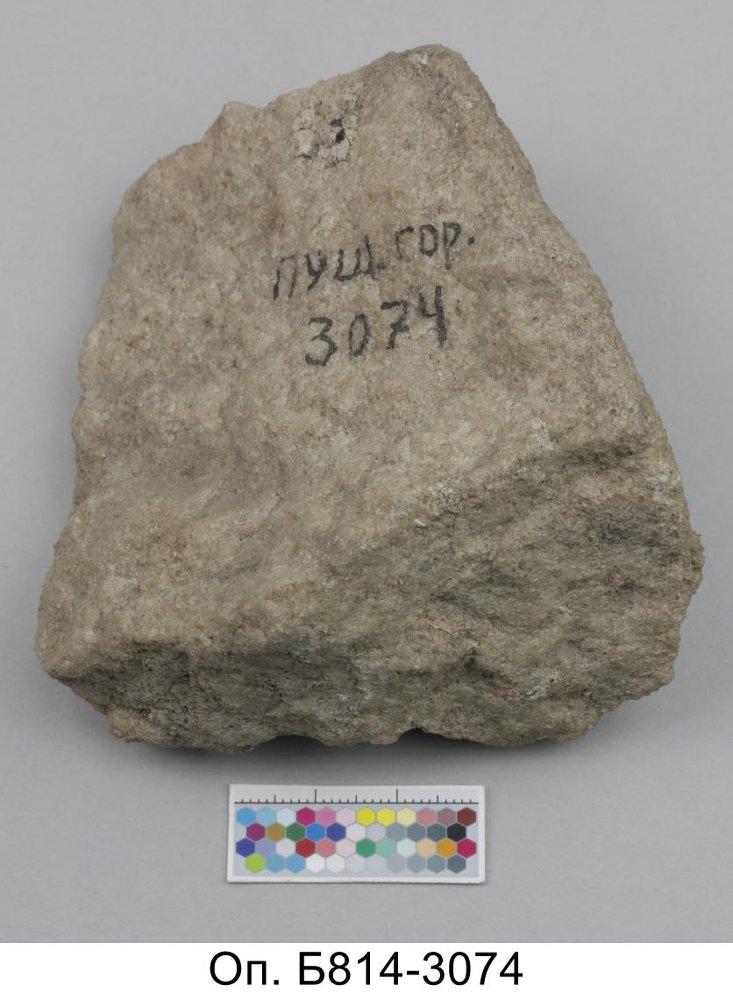 ПУЩ. ГОР.
3074
Оп. Б814-3074